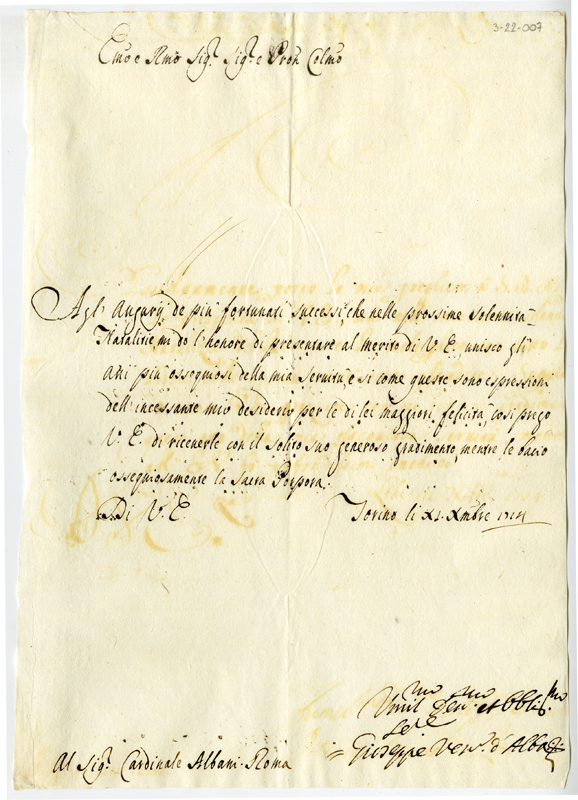 3-22-007
Emo e Rmo Sig.r Sig.r e Pron Colmo
Agl' Augurij de più fortunati successi, che nelle prossime solennità
Natalitie mi do l'honore di presentare al merito di V. E., unisco gl'
atti più ossequiosi della mia servitù, e si come queste sono espressioni
dell' incessante mio desiderio per le di lei maggiori felicità, cosi prego
V. E. di riceverle con il solito suo generoso gradimento, mentre le bacio
ossequiosamente la sacra Porpora.
Di V. E.
Torino li XI Xmbre 1714
Umil.mo Dev.mo et Oblig.mo
Ser.e
Giuseppe Vesc.o d'Alba
Al Sig.r Cardinale Albani. Roma